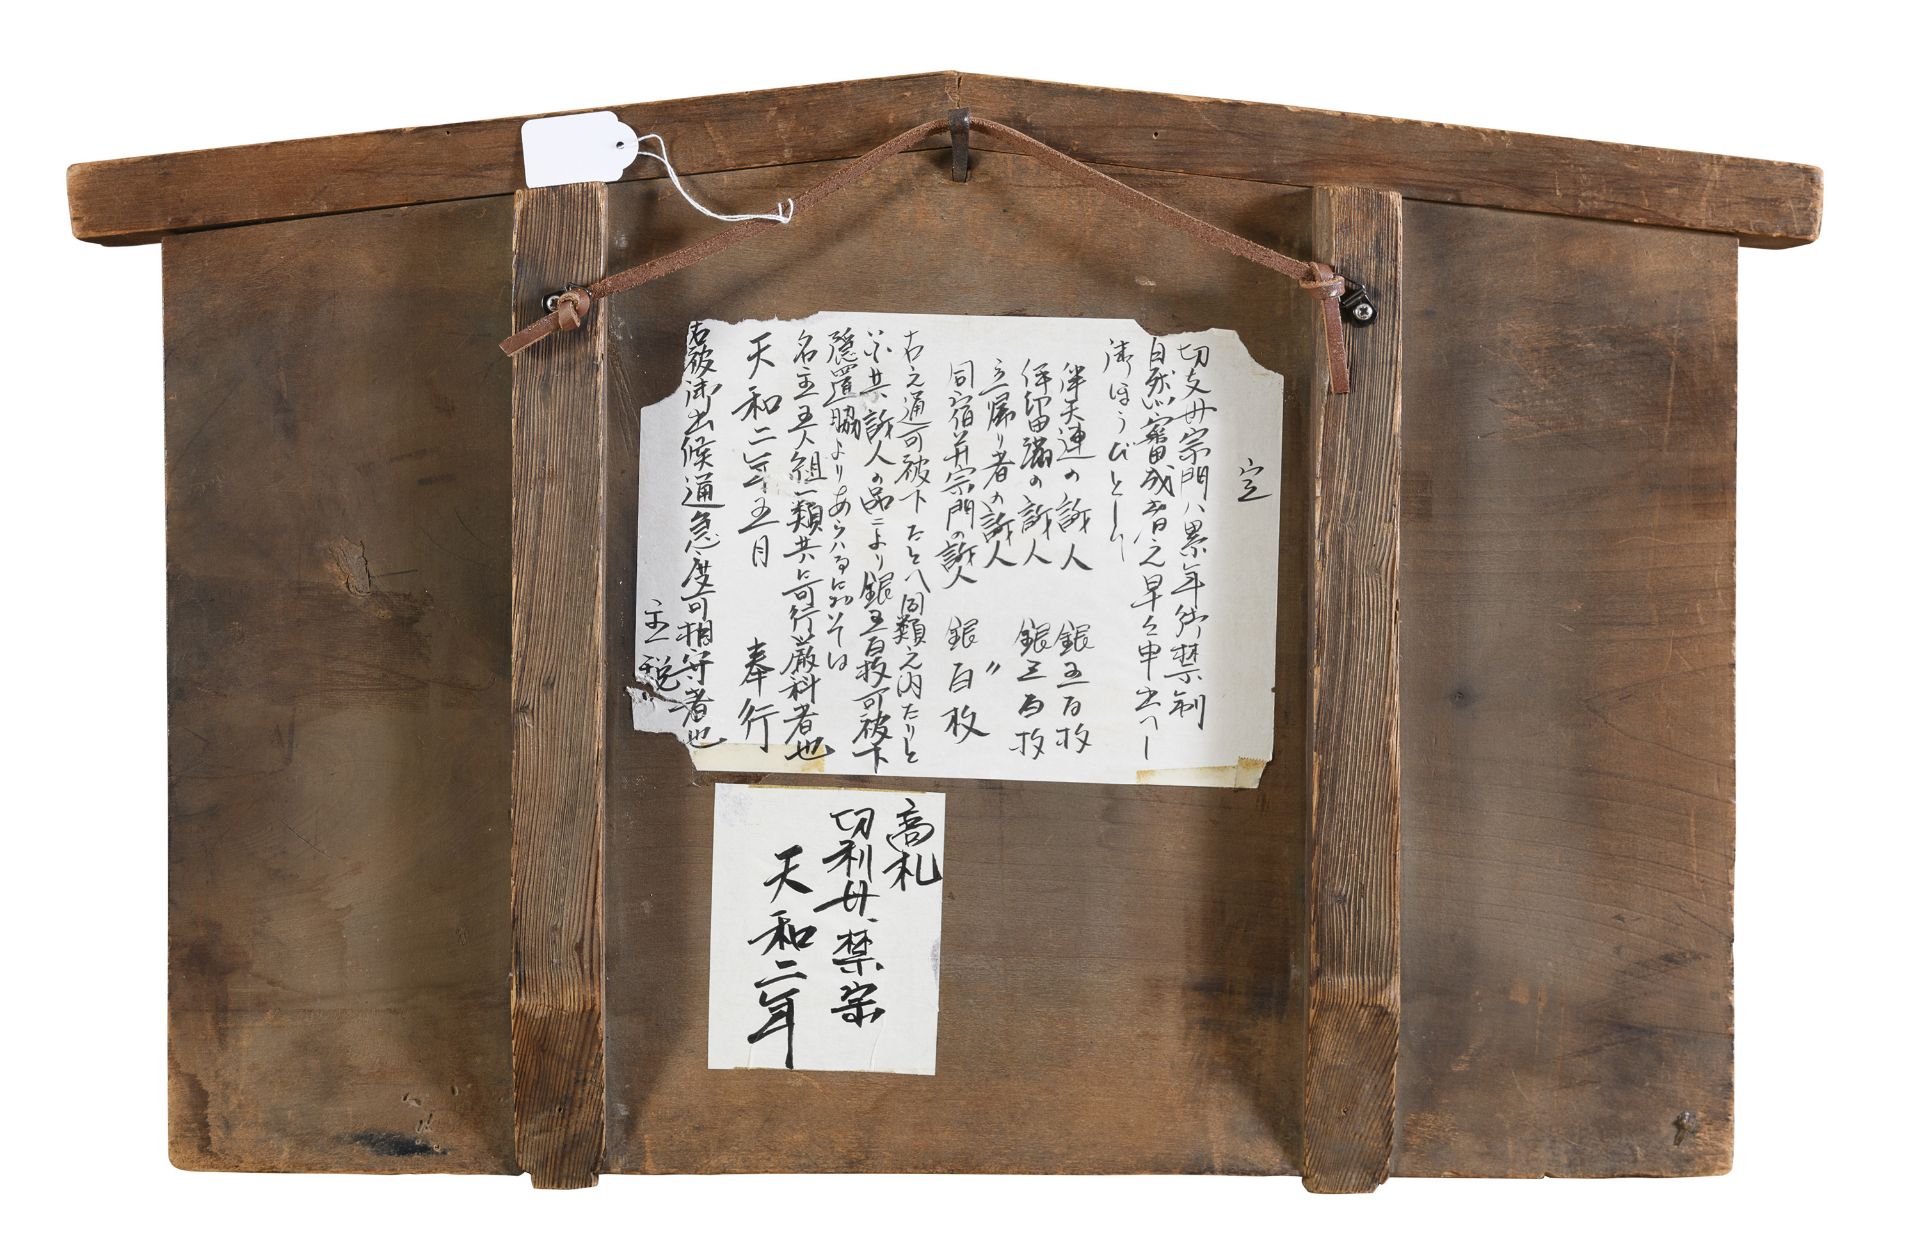 定
切支丹宗門ハ累年御禁制
自然不審成者有之早々申出へし
御ほうびとして
伴天連の訴人 銀五百枚
伊留満の訴人 銀三百枚
立帰り者の訴人 〃
同宿并宗門の訴人 銀百枚
右之通可被下たとへ同類之内たりと
いふ共訴人の品ニより銀五百枚可被下
隠置脇よりあらハるにおゐては
名主五人組一類共に可行厳科者也
天和二年五月 奉行
右被御出候通急度可相守者也
主税
高札
切利丹禁宗
天和二年